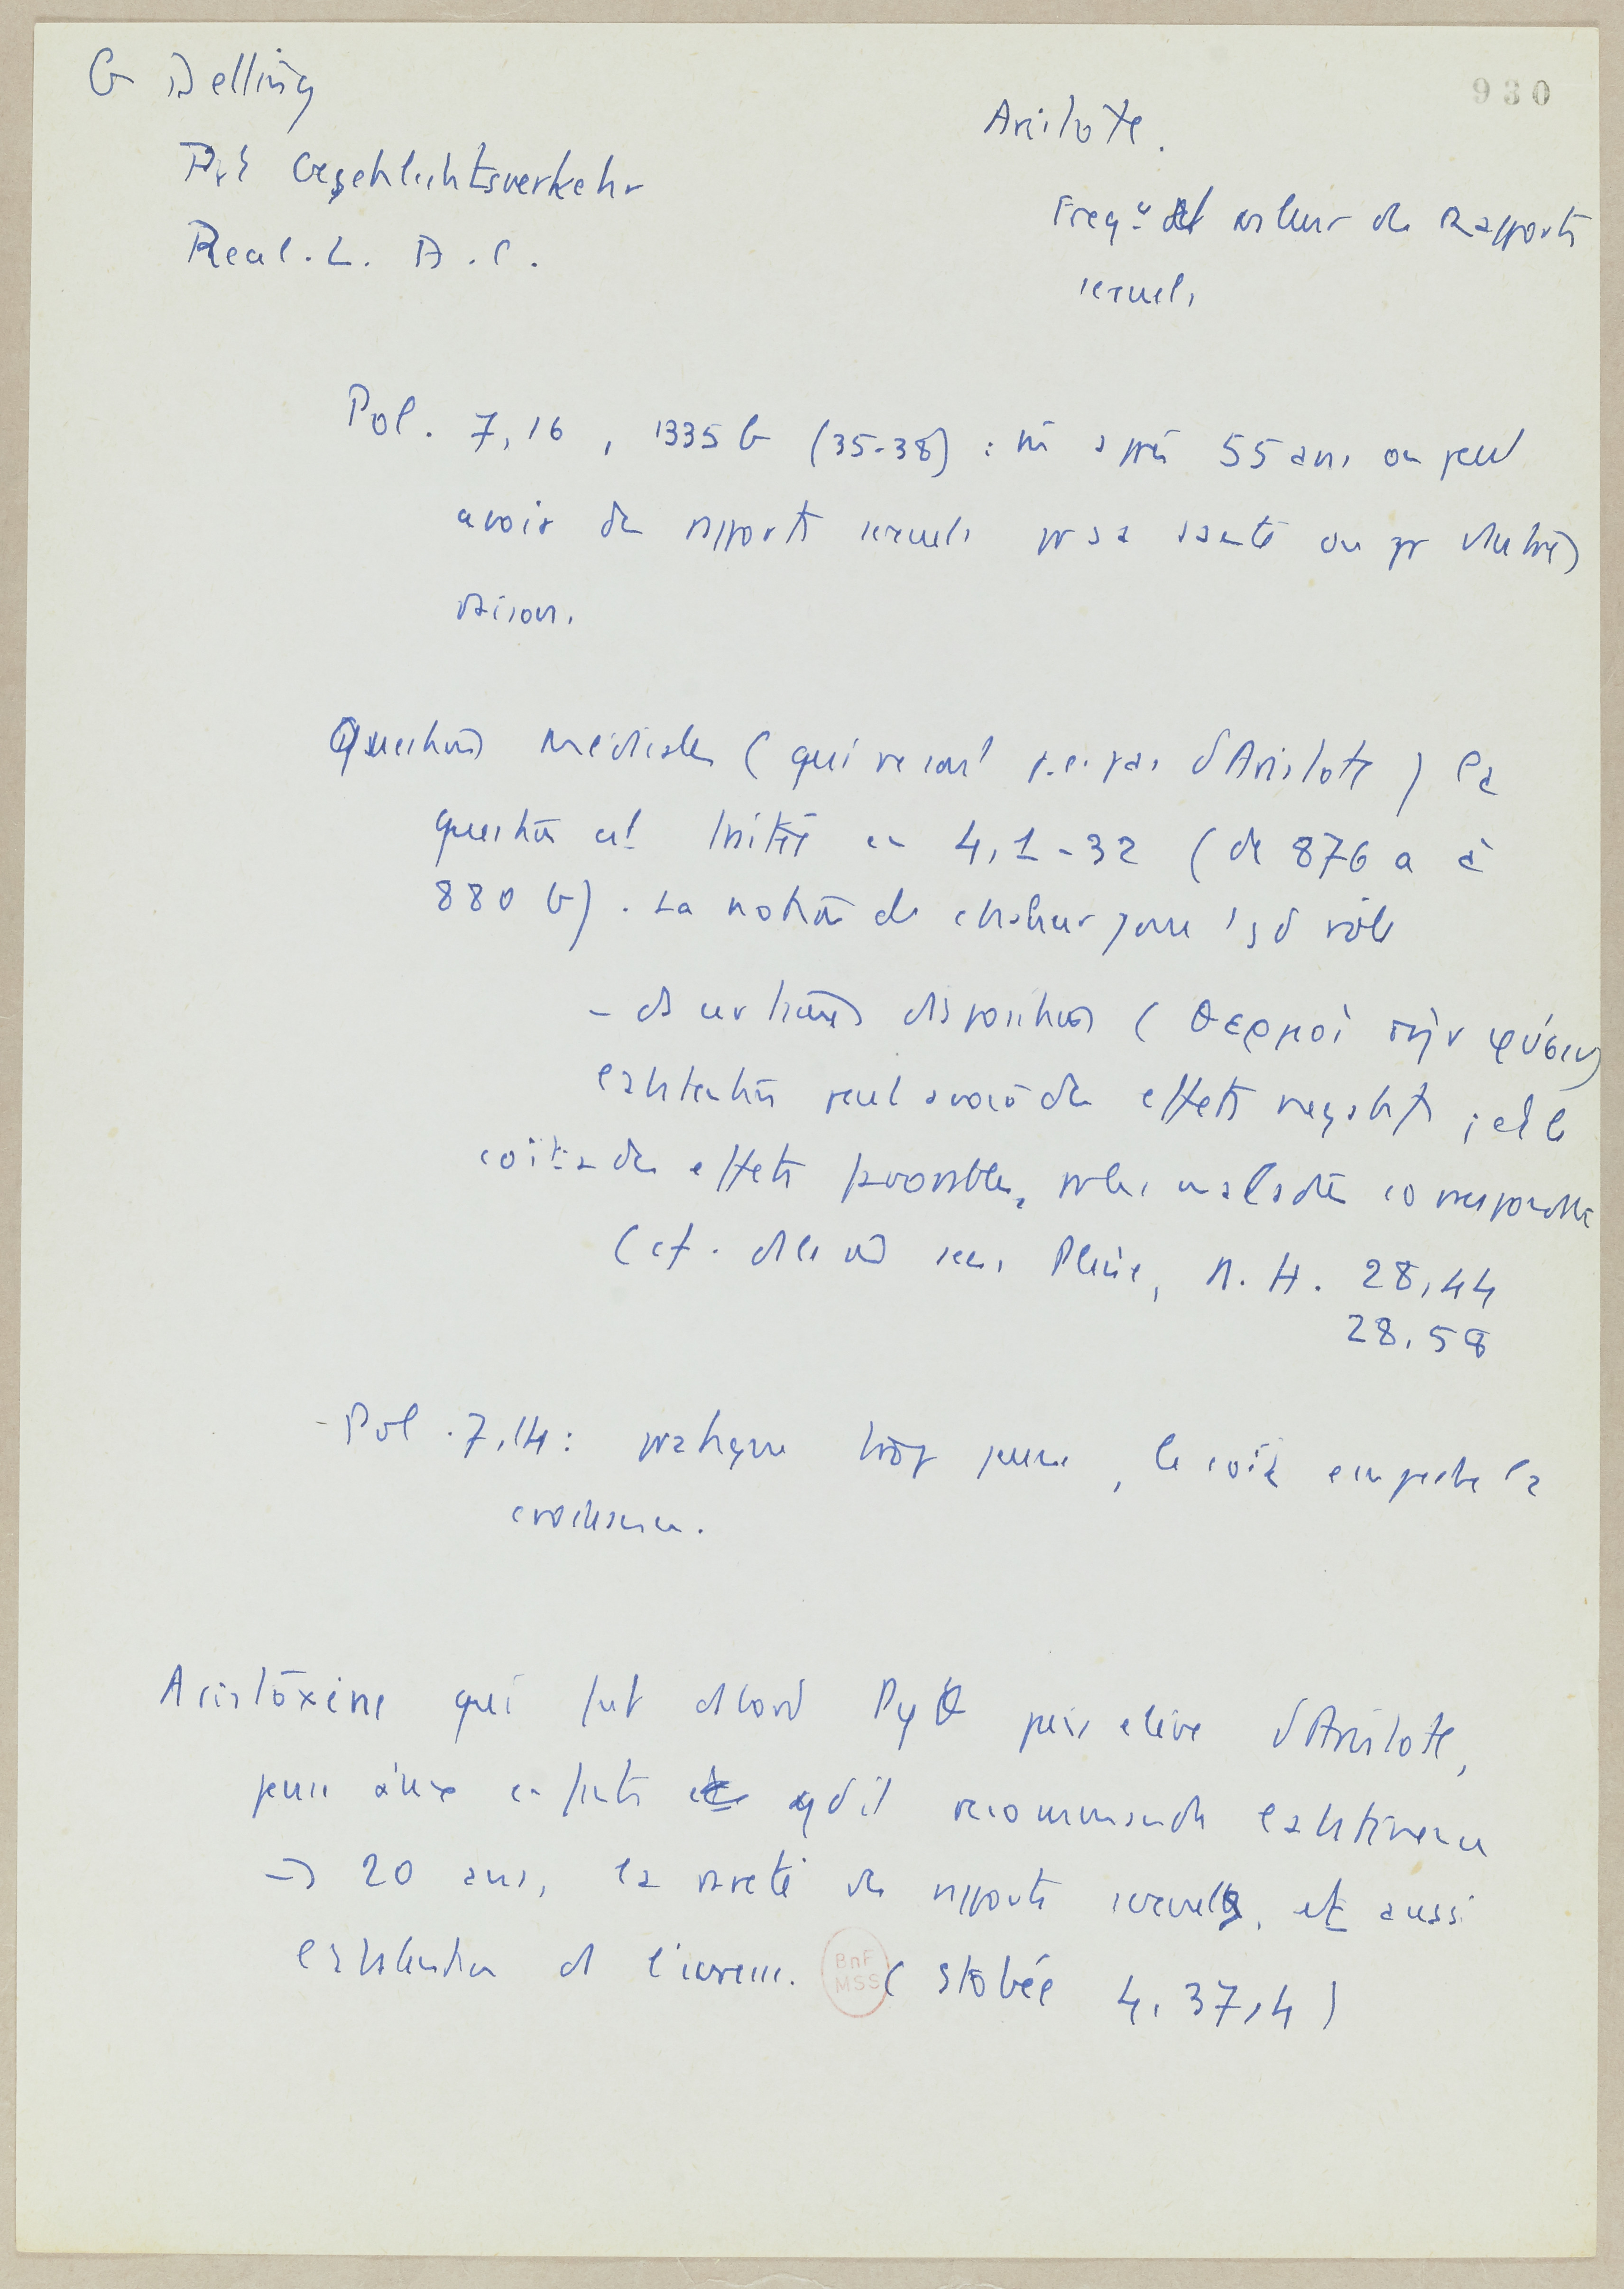 G Delling
930
Art Geschlechtsverkehr
Real. L. A. C.
Aristote.
Freq. et valeur des Rapports
sexuels
Pol. 7, 16, 1335 b (35-38) : si après 55 ans on peut
avoir des rapports sexuels pr sa santé ou pr d'autres
raison.
Questions médicales (qui ne sont p.e. pas d'Aristote) la
question est traitée en 4, 1-32 (de 876 a à
880 b). La notion de chaleur joue 1 gd rôle
- ds certaines dispositions (θερμοὶ τὴν φύσιν)
l'abstention peut avoir des effets négatifs ; et le
coït a des effets favorables, sur les maladies correspondantes
(cf. ds le m sens Pline, N. H. 28, 44
28, 58
- Pol. 7, 14 : pratiqué trop jeune, le coït empêche la
croissance.
Aristoxène qui fut d'abord Pyθ puis élève d'Aristote,
pense aux enfants qd il recommande l'abstinence
→ 20 ans, la rareté des rapports sexuels, et aussi
l'abstention de l'ivresse. (Stobée 4, 37, 4)
BnF
MSS